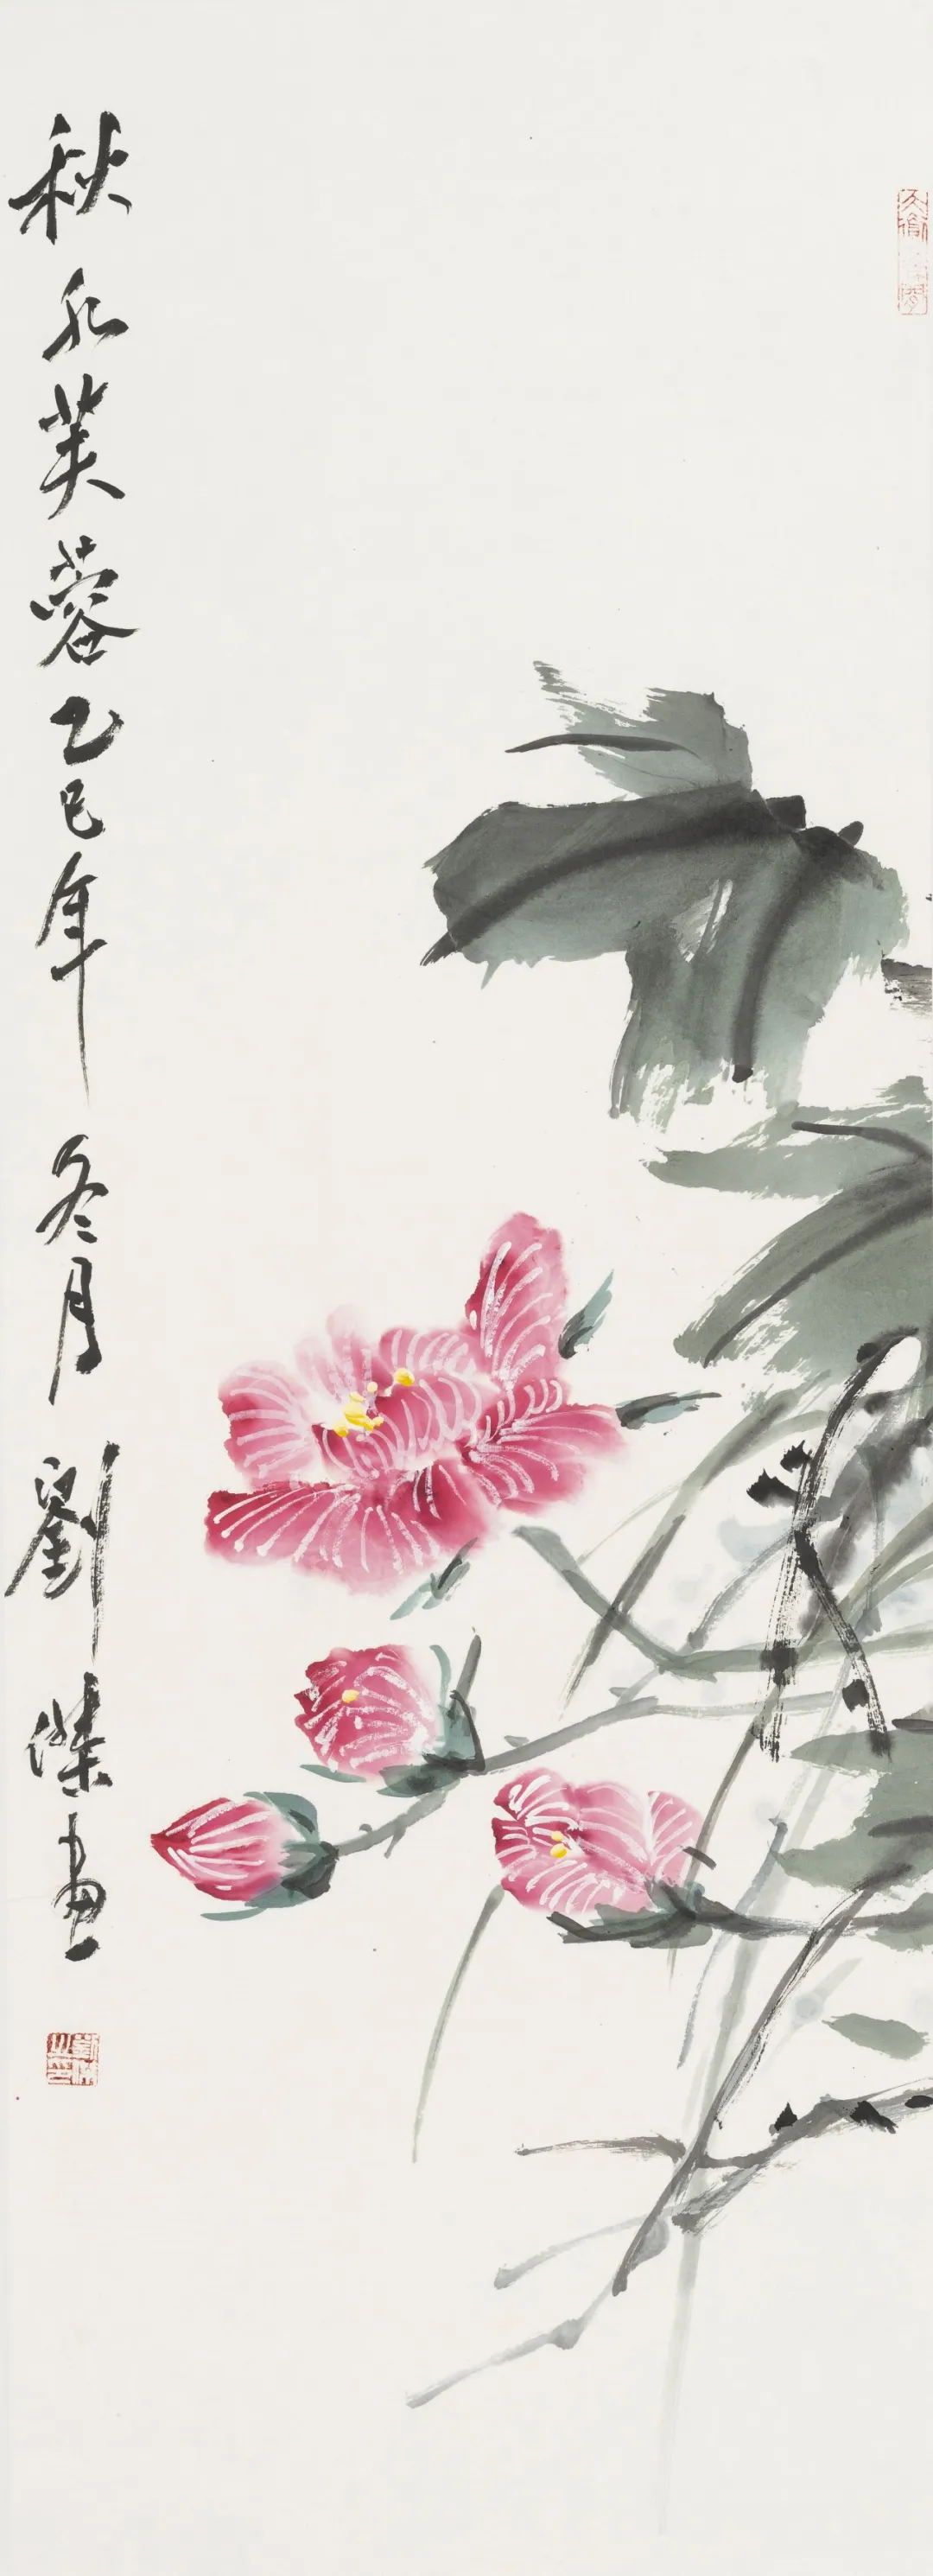 秋水芙蓉乙巳年冬月劉傑畫